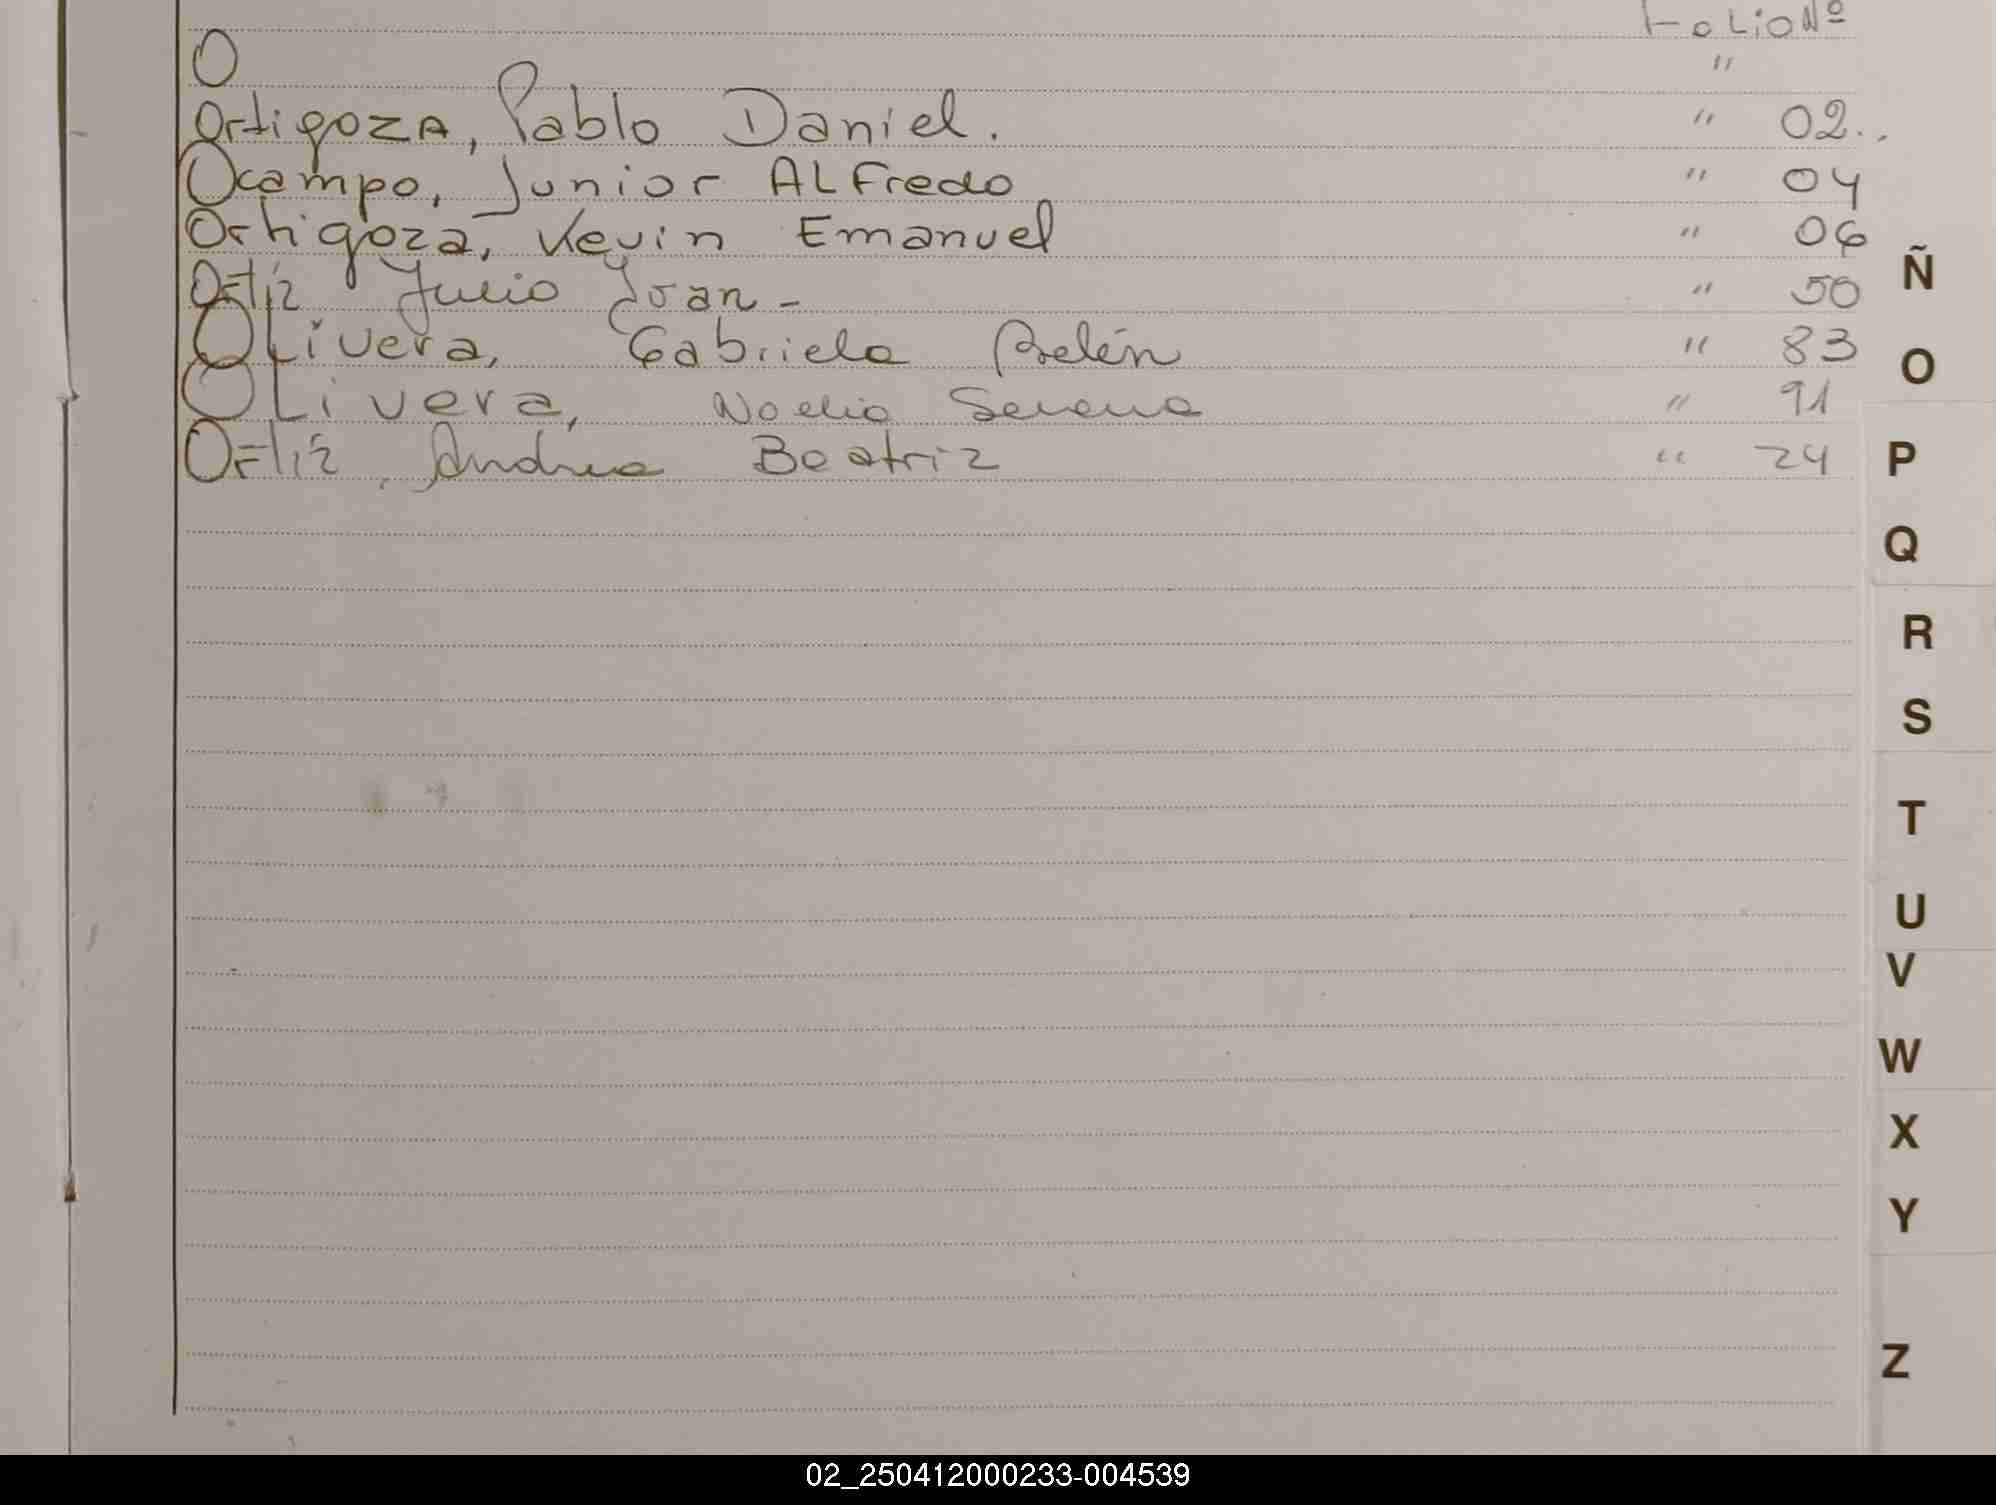 FoLio Nº
O "
Ortigoza, Pablo Daniel. " 02..
Ocampo, Junior ALFredo " 04
Ortigoza, Kevin Emanuel " 06
Ortíz Julio Ivan - " 50
OLivera, Gabriela Belén " 83
OLivera, Noelia Serena " 91
Ortíz, Andrea Beatriz " 24
Ñ
O
P
Q
R
S
T
U
V
W
X
Y
Z
02_250412000233-004539